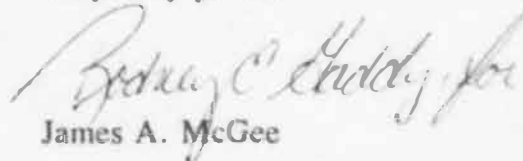 Rodney C Gaddy, for
James A. McGee